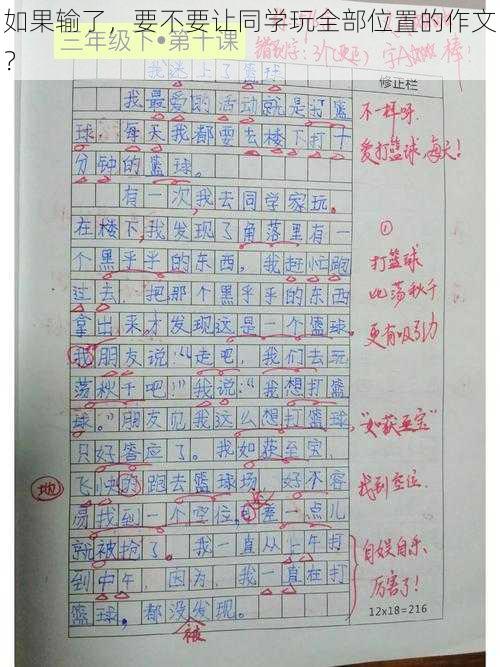 如果输了，要不要让同学玩全部位置的作文
?
三年级下•第十课
错别字：3个(更正) 字A 棒！
我迷上了篮球
修正栏
我最爱的活动就是打篮
球，每天我都要去楼下打十
分钟的篮球。
不一样呀.
爱打篮球,每天!
有一次，我去同学家玩。
在楼下，我发现了角落里有一
个黑乎乎的东西，我赶忙跑
过去，把那个黑乎乎的东西
拿出来才发现这是一个篮球。
①
打篮球
比荡秋千
更有吸引力
我朋友说：“走吧，我们去玩
荡秋千吧！”我说：“我想打篮
球。”朋友见我这么想打篮球，
只好答应了。我如获至宝，
“如获至宝”
地
飞快的跑去篮球场，好不容
易找到一个空位，差一点儿
就被抢了。我一直从上午打
到中午，因为，我一直在打
篮球，都没发现。
被
找到空位.
自娱自乐、
厉害了!
12x18=216